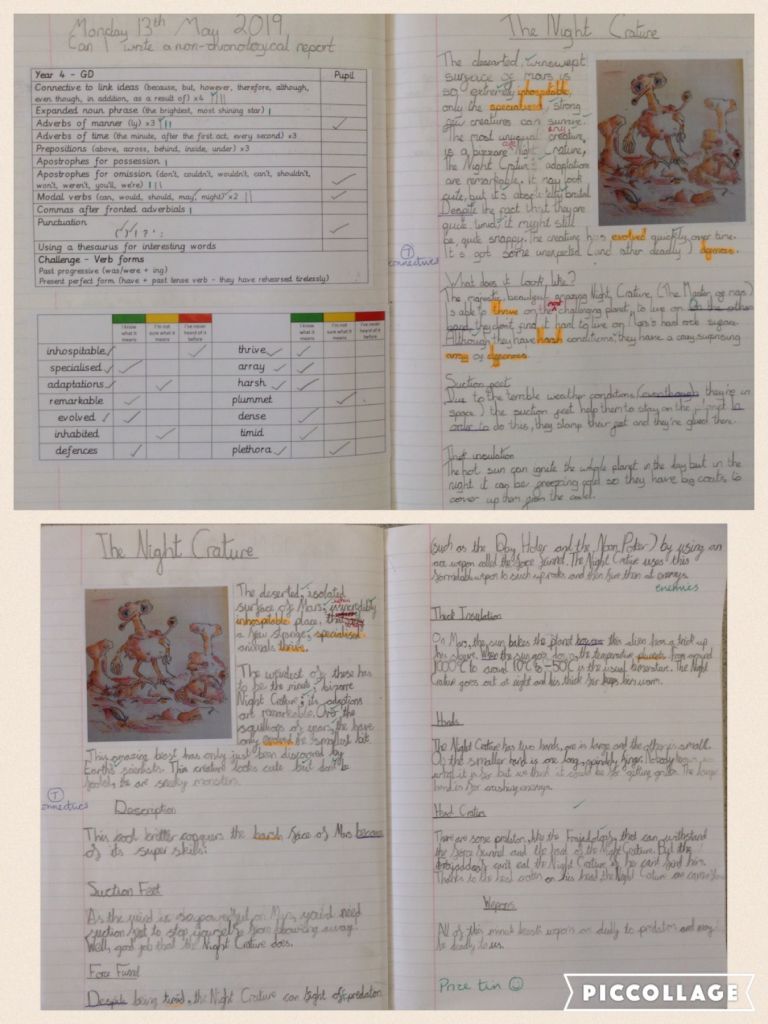 Monday 13th May 2019
Can I write a non-chronological report
Year 4 - GD
Pupil
Connective to link ideas (because, but, however, therefore, although,
even though, in addition, as a result of) x4
Expanded noun phrase (the brightest, most shining star)
Adverbs of manner (ly) x3
Adverbs of time (the minute, after the first act, every second) x3
Prepositions (above, across, behind, inside, under) x3
Apostrophes for possession
Apostrophes for omission (don't, couldn't, wouldn't, can't, shouldn't,
won't, weren't, you'll, we're)
Modal verbs (can, would, should, may, might) x2
Commas after fronted adverbials
Punctuation
Using a thesaurus for interesting words
Challenge - Verb forms
Past progressive (was/were + ing)
Present perfect form (have + past tense verb - they have rehearsed tirelessly)
I know what it means
I'm not sure what it means
I've never heard of it
I know what it means
I'm not sure what it means
I've never heard of it
inhospitable thrive
specialised array
adaptations harsh
remarkable plummet
evolved dense
inhabited timid
defences plethora
The Night Crature
The deserted, windswept
surface of Mars is
so extremely inhospitable,
only the specialised, strong
few creatures can survive.
The most unusual creature,
is a bizzare Night Crature,
The Night Crature's adaptations
are remarkable. It may look
cute, but it's absolutely brutal
Despite the fact that they are
quite timid, it might still
be quite snappy. The creature has evolved quickly over time.
It's got some unexpected (and other deadly) defences.
T
connectives
What does it look like?
The majestic, beautiful amazing Night Crature, (The Master of mars)
is able to thrive on the challenging planet, to live on On the other
hand they don't find it hard to live on Mars's hard rock surface.
Although they have harsh conditions, they have a very surprising
array of defences.
Suction feet
Due to the terrible weather conditions (even though they're in
space) the suction feet help them to stay on the planet In
order to do this, they stamp their feet and they're glued there.
Theft insulation
The hot sun can ignite the whole planet in the day but in the
night it can be freezing cold so they have big coats to
cover up them from the cold.
The Night Crature
The deserted, isolated
surface of Mars, is
inhospitable place,
a few strange, specialised
animals thrive.
The weirdest of these has
to be the bizarre
Night Crature, its adaptions
are remarkable. Over the
squillions of years, the have
only evolved the smallest bit.
This amazing beast has only just been discovered by
Earth's scientists. This creature looks cute but don't be
fooled, he are sneaky monsters.
T
connectives
Description
This cool critter conquers the harsh face of Mars because
of its super skills:
Suction Feet
As the wind is so powerful on Mars, you'd need
suction feet to stop yourself from blowing away!
Well, good job that the Night Crature does.
Force Funnel
Despite being timid, the Night Crature can fight of predators
(such as the Day Hater and the Moon Potter) by using an
weapon called the Force Funnel. The Night Crature uses this
formidable weapon to suck up rocks and then fire them at enemys.
enemies
Thick Insulation
On Mars, the sun bakes the planet however this alien has a trick up
his sleeve. When the sun goes down, the temperature plumets from around
1000°C to around 10°C to -50C is the usual temperature. The Night
Crature goes out at night and his thick fur keeps him warm.
Hands
The Night Crature has two hands, one is large and the other is small.
On the smaller hand is one long, spindly finger. Nobody knows
what it is for but we think it could be for getting grubs. The larger
hand is for crushing enemys.
Head Crater
There are some predators, like the that can withstand
the force funnel and the hand of the Night Crature. But the
can't eat the Night Crature if he cant find him.
Thanks to the head crater on his head the Night Crature can
Weapons
All of this beasts wepons are deadly to predators and may
be deadly to us.
Prize tin
PICCOLLAGE